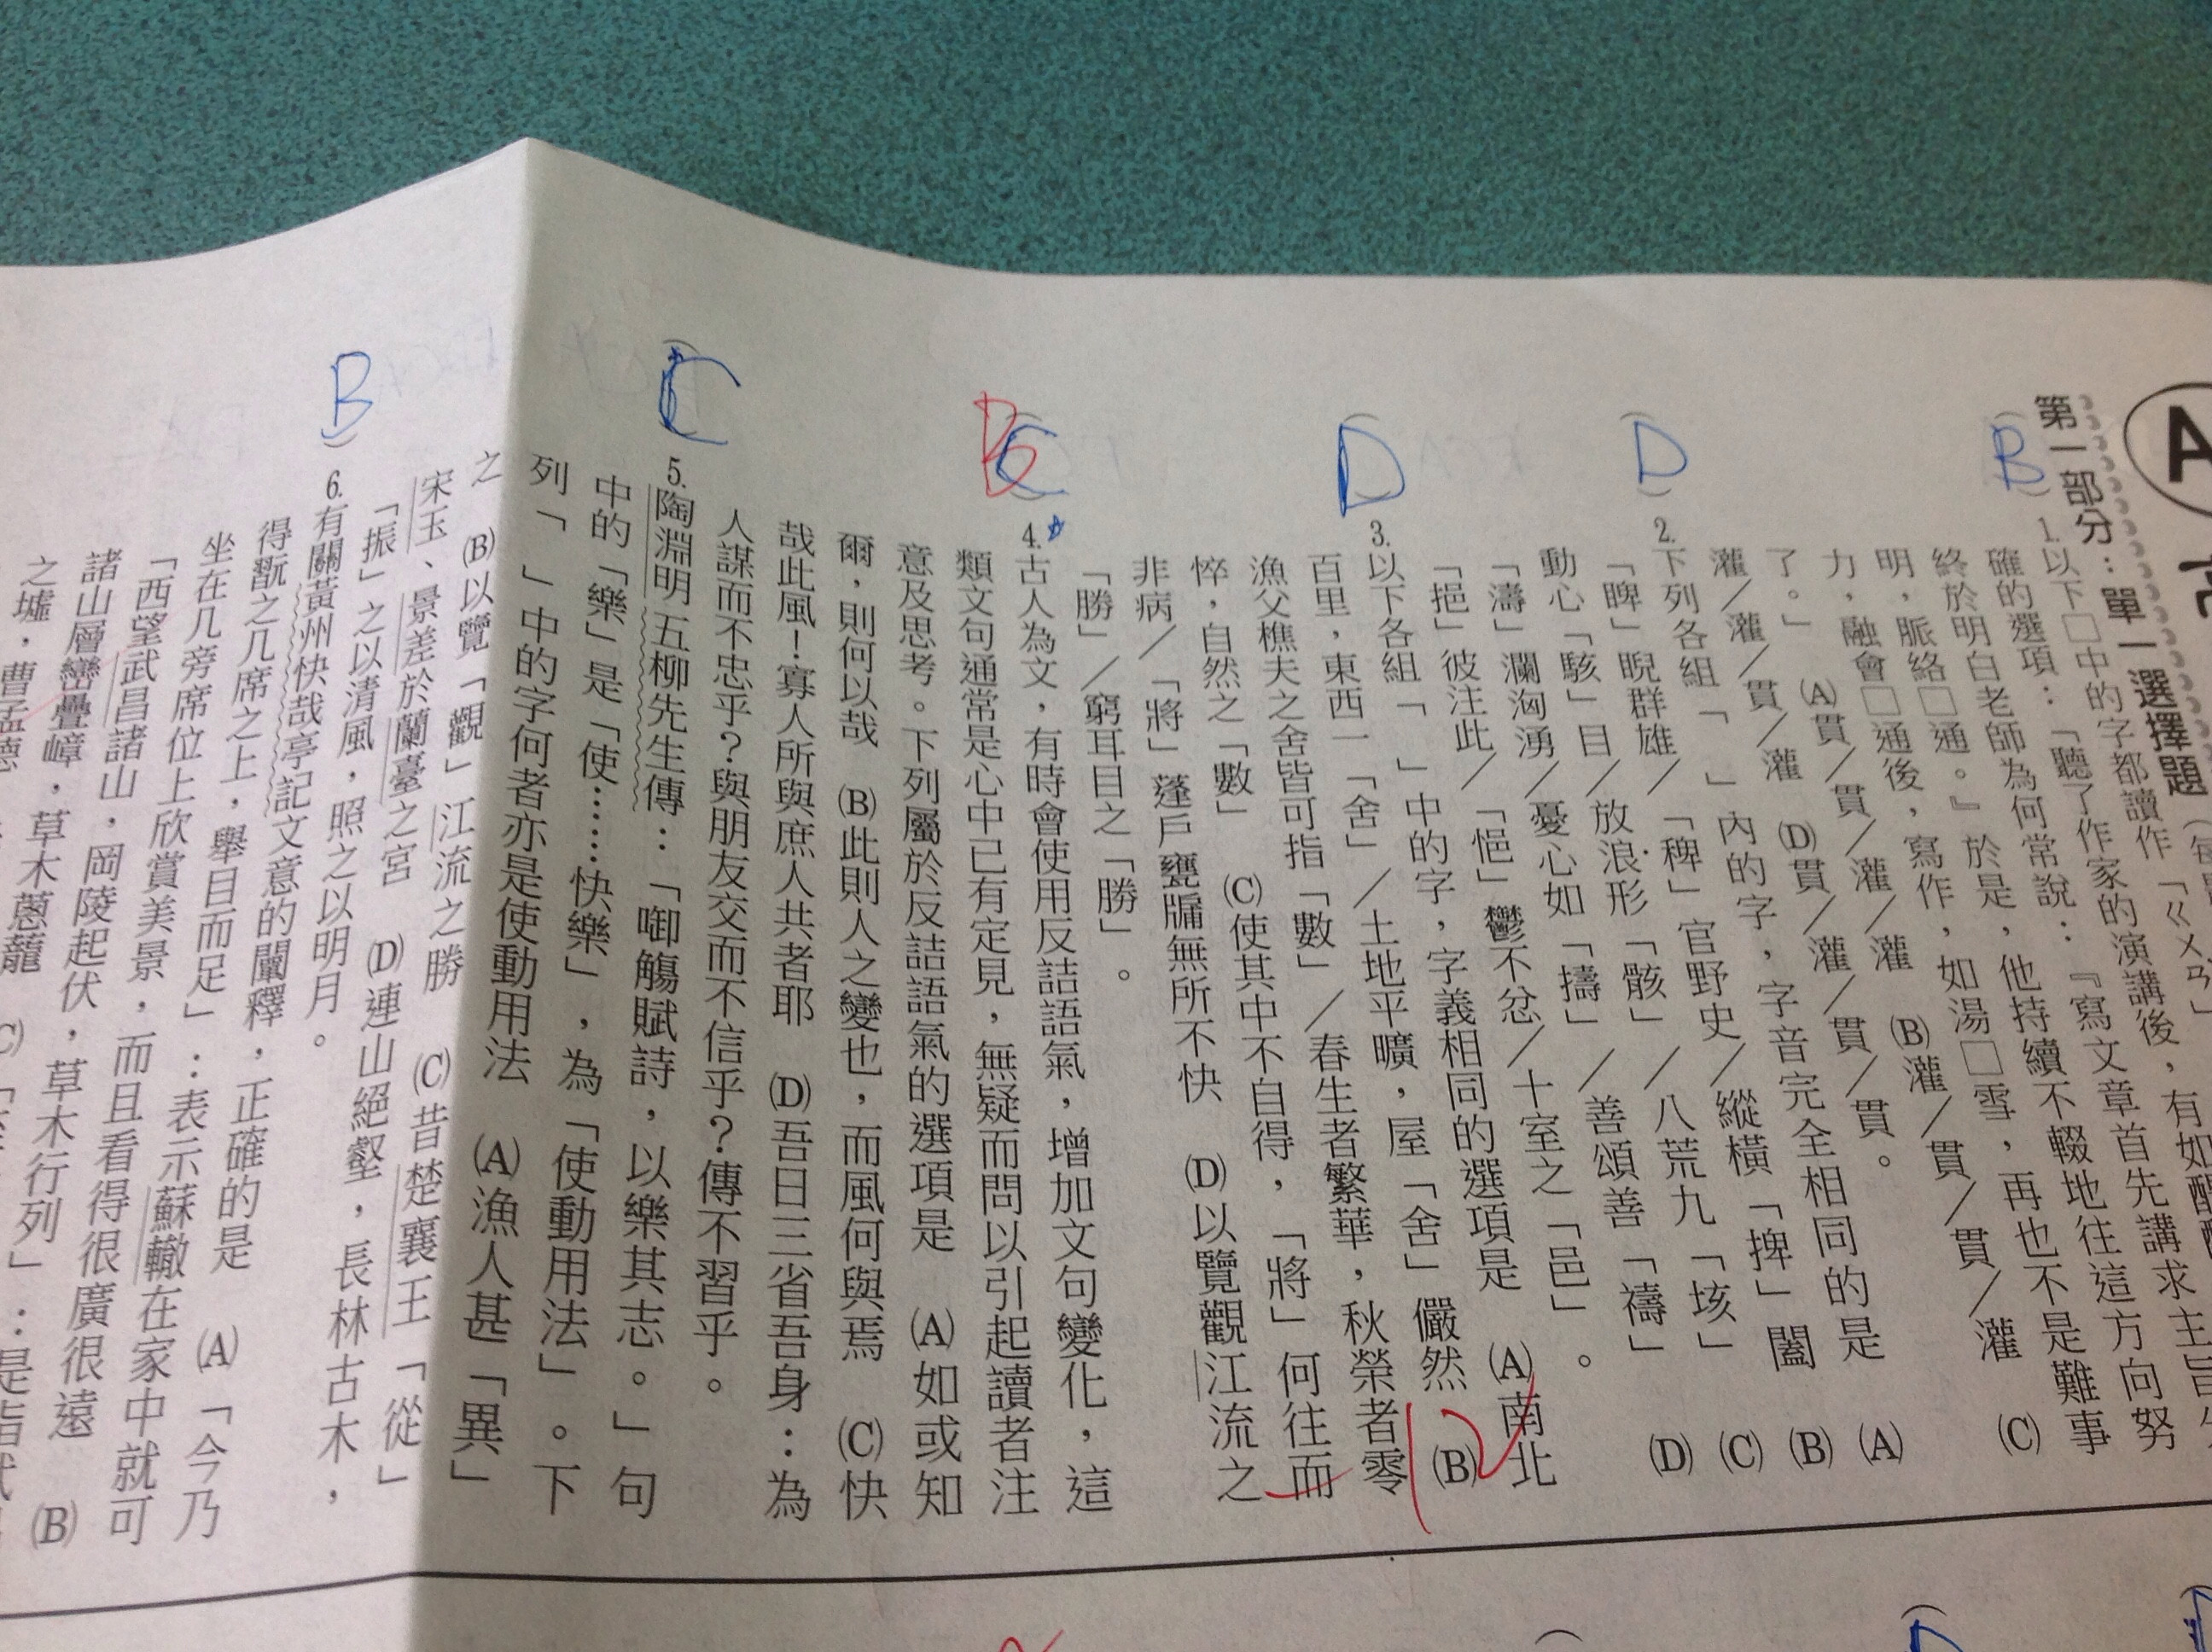 A
第一部分：單一選擇題
B
1.以下□中的字都讀作「ㄍㄨㄢˋ」
確的選項：「聽了作家的演講後，有如醍醐
終於明白老師為何常說：『寫文章首先講求主旨
明，脈絡□通。』於是，他持續不輟地往這方向努
力，融會□通後，寫作，如湯□雪，再也不是難事
了。」 (A)貫／貫／灌／灌 (B)灌／貫／貫／灌 (C)
灌／灌／貫／灌 (D)貫／灌／貫／貫。
D
2.下列各組「 」內的字，字音完全相同的是 (A)
「睥」睨群雄／「稗」官野史／縱橫「捭」闔 (B)
動心「駭」目／放浪形「骸」／八荒九「垓」 (C)
「濤」瀾洶湧／憂心如「擣」／善頌善「禱」 (D)
「挹」彼注此／「悒」鬱不忿／十室之「邑」。
D
3.以下各組「 」中的字，字義相同的選項是 (A)南北
百里，東西一「舍」／土地平曠，屋「舍」儼然 (B)
漁父樵夫之舍皆可指「數」／春生者繁華，秋榮者零
悴，自然之「數」 (C)使其中不自得，「將」何往而
非病／「將」蓬戶甕牖無所不快 (D)以覽觀江流之
「勝」／窮耳目之「勝」。
B
C
4.古人為文，有時會使用反詰語氣，增加文句變化，這
類文句通常是心中已有定見，無疑而問以引起讀者注
意及思考。下列屬於反詰語氣的選項是 (A)如或知
爾，則何以哉 (B)此則人之變也，而風何與焉 (C)快
哉此風！寡人所與庶人共者耶 (D)吾日三省吾身：為
人謀而不忠乎？與朋友交而不信乎？傳不習乎。
C
5.陶淵明五柳先生傳：「啣觴賦詩，以樂其志。」句
中的「樂」是「使……快樂」，為「使動用法」。下
列「 」中的字何者亦是使動用法 (A)漁人甚「異」
之 (B)以覽「觀」江流之勝 (C)昔楚襄王「從」
宋玉、景差於蘭臺之宮 (D)連山絕壑，長林古木，
「振」之以清風，照之以明月。
B
6.有關黃州快哉亭記文意的闡釋，正確的是 (A)「今乃
得翫之几席之上，舉目而足」：表示蘇轍在家中就可
坐在几旁席位上欣賞美景，而且看得很廣很遠 (B)
「西望武昌諸山，岡陵起伏，草木行列」：是指武
諸山層巒疊嶂，草木蔥蘢 (C)
之墟，曹孟德
D